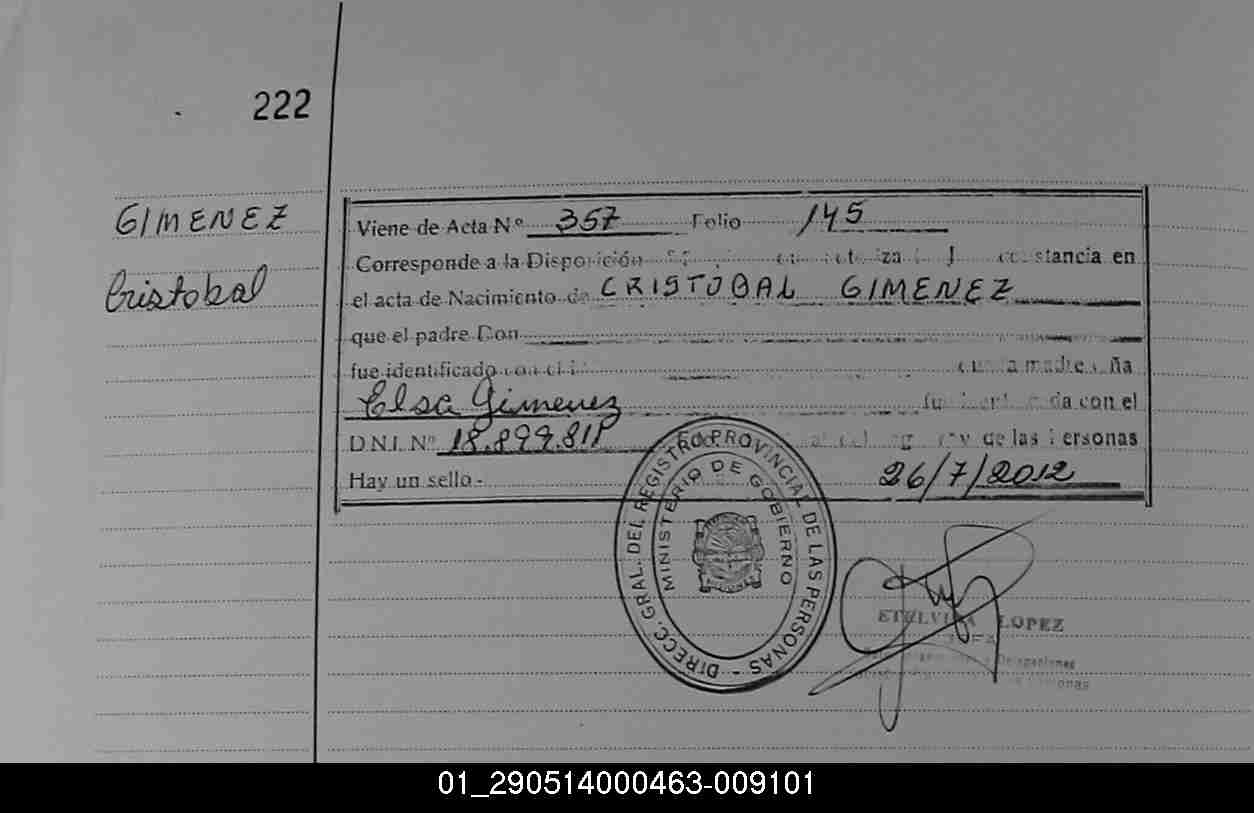 222
GIMENEZ
Cristobal
Viene de Acta Nº 357 Folio 145
Corresponde a la Disposición constancia en
el acta de Nacimiento de CRISTOBAL GIMENEZ
que el padre Don
fue identificado con el la madre
Elsa Gimenez con el
D.N.I. Nº 18.899.811 de las Personas
Hay un sello - 26/7/2012
DIRECC. GRAL. DEL REGISTRO PROVINCIAL DE LAS PERSONAS -
MINISTERIO DE GOBIERNO
ETELVINA LOPEZ
JEFA
Delegaciones
01_290514000463-009101